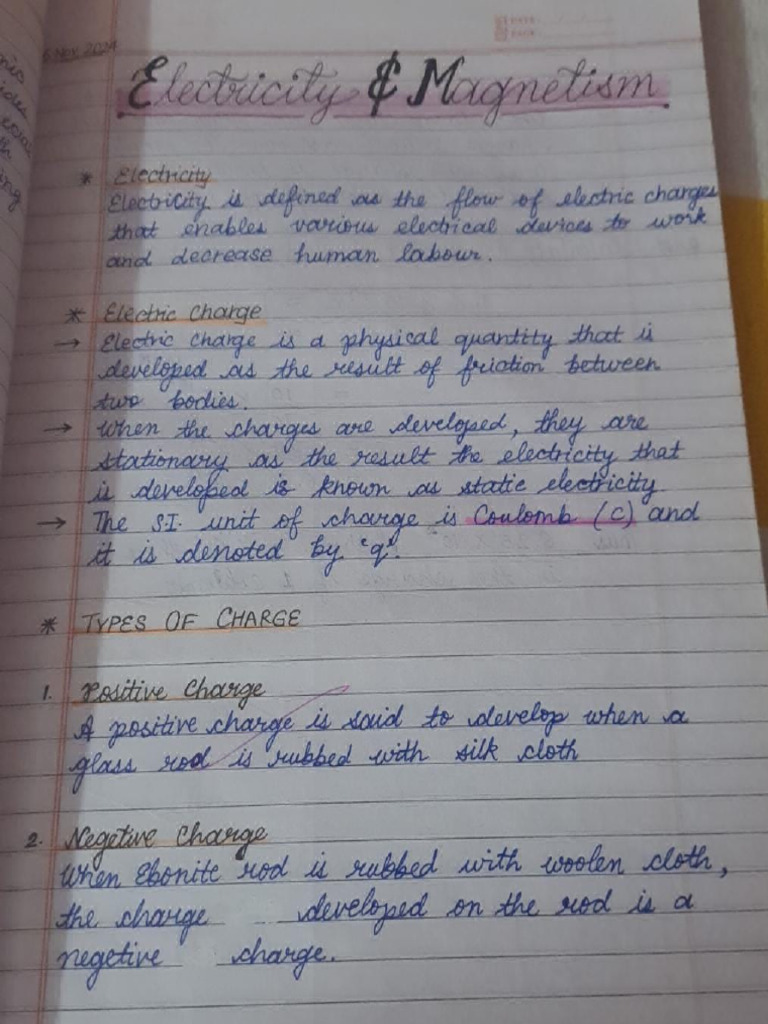 DATE:
PAGE:
5 Nov, 2024
Electricity & Magnetism
* Electricity
Electricity is defined as the flow of electric charges
that enables various electrical devices to work
and decrease human labour.
* Electric Charge
→ Electric charge is a physical quantity that is
developed as the result of friction between
two bodies.
→ When the charges are developed, they are
stationary as the result the electricity that
is developed is known as static electricity
→ The S.I. unit of charge is Coulomb (C) and
it is denoted by "q".
* TYPES OF CHARGE
1. Positive Charge
A positive charge is said to develop when a
glass rod is rubbed with silk cloth
2. Negetive Charge
When Ebonite rod is rubbed with woolen cloth,
the charge developed on the rod is a
negetive charge.